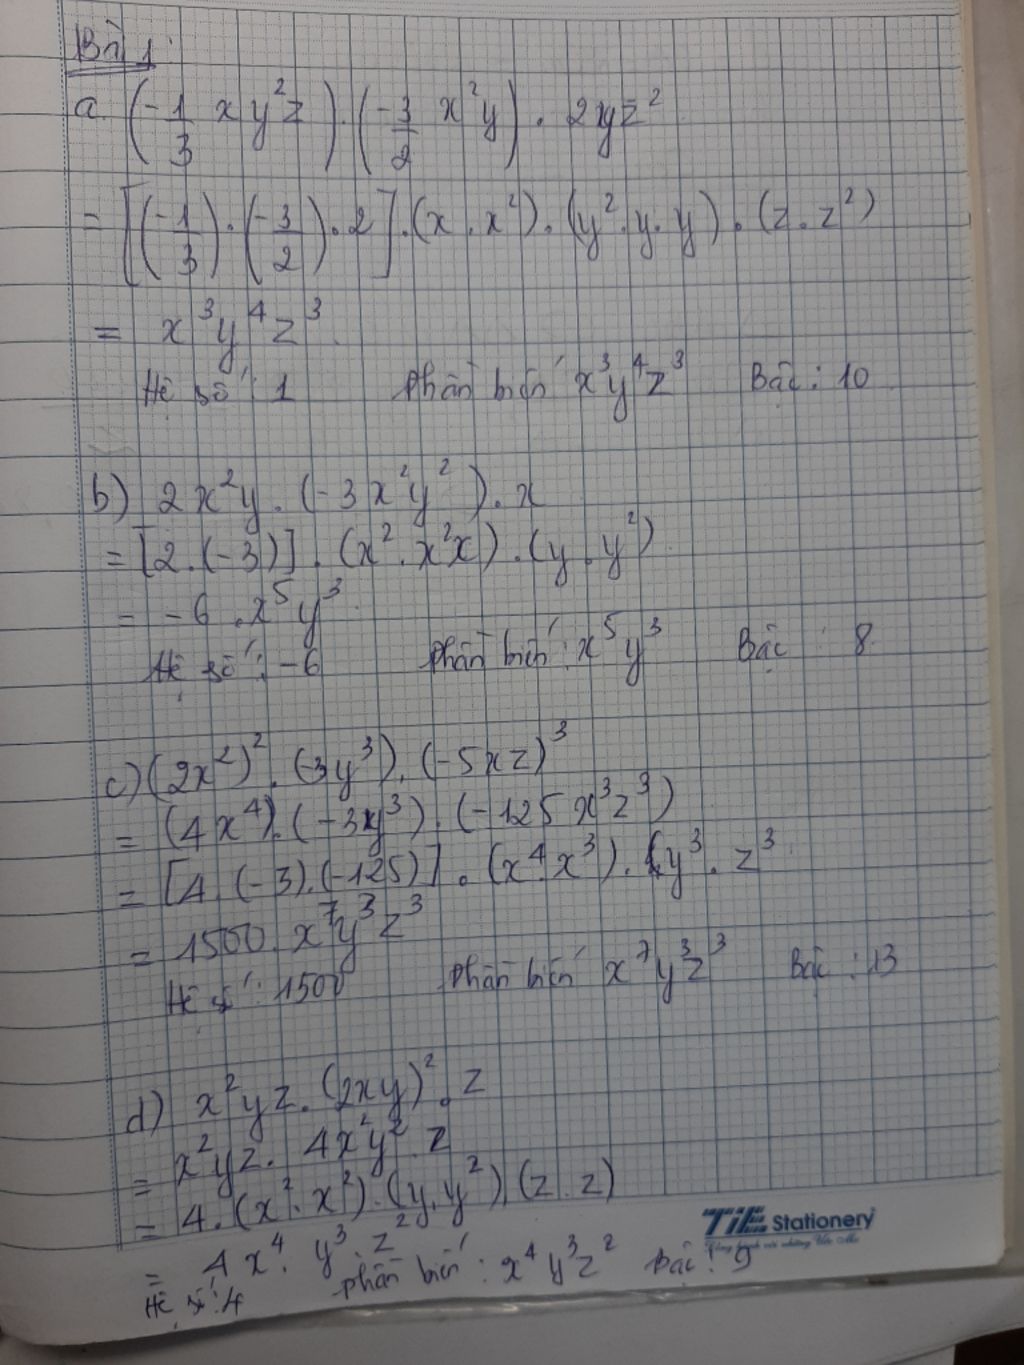 Bài 1:
a. (-1/3 x y²z).(-3/2 x²y). 2yz²
= [(-1/3).(-3/2).2].(x.x²).(y².y.y).(z.z²)
= x³y⁴z³
Hệ số: 1 Phần biến x³y⁴z³ Bậc: 10
b) 2x²y.(-3x²y²).x
= [2.(-3)].(x².x²x).(y.y²)
= -6.x⁵y³
Hệ số: -6 Phần biến: x⁵y³ Bậc: 8
c) (2x²)².(-3y³).(-5xz)³
= (4x⁴).(-3y³).(-125x³z³)
= [4.(-3).(-125)].(x⁴.x³).(y³.z³
= 1500.x⁷y³z³
Hệ số: 1500 Phần biến x⁷y³z³ Bậc: 13
d) x²yz.(2xy)².z
= x²yz. 4x²y².z
= 4.(x².x²).(y.y²).(z.z)
= 4x⁴.y³.z²
Hệ số: 4 Phần biến: x⁴y³z² Bậc: 9
TiE Stationery